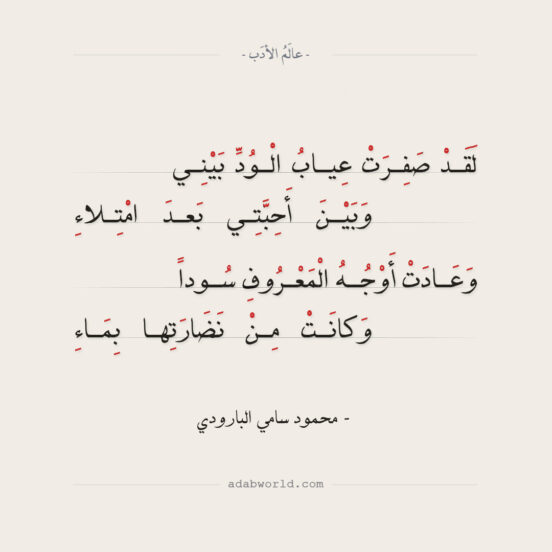 - عالَمُ الأدَب -
لَقَـدْ صَفِـرَتْ عِيـابُ الْـوُدِّ بَيْنِـي
وَبَيْـنَ أَحِبَّتِـي بَعـدَ امْتِـلاءِ
وَعَـادَتْ أَوْجُـهُ الْمَعْـرُوفِ سُـوداً
وَكانَـتْ مِـنْ نَضَارَتِهـا بِمَـاءِ
- محمود سامي البارودي
adabworld.com